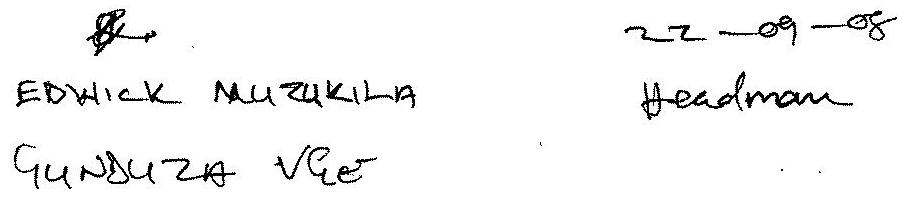 22-09-08
EDWICK MUZUKILA Headman
GUNDUZA VGE